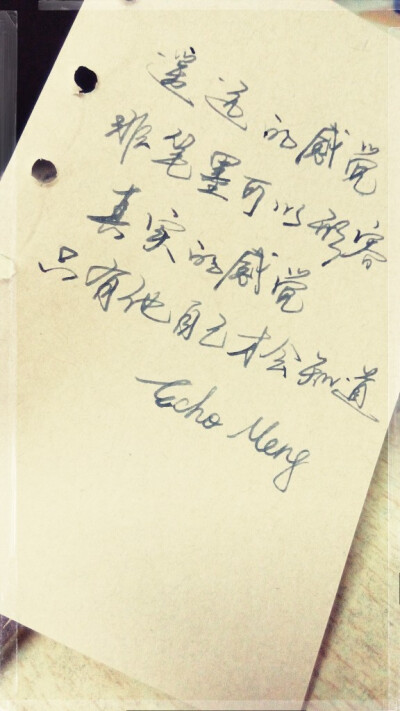 遥远的感觉
难笔墨可以形容
真实的感觉
只有他自己才会知道
Echo Meng